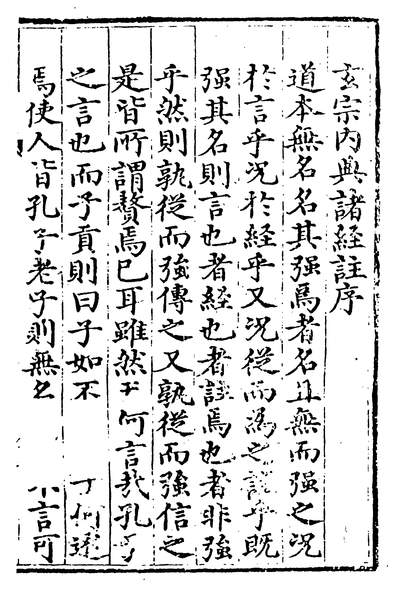 玄宗內典諸經註序
道本無名名其强焉者名且無而强之況
扵言乎況扵經乎又況從而為之註乎既
强其名則言也者經也者註焉也者非强
乎然則孰從而強傳之又孰從而強信之
是皆所謂贅焉已耳雖然天何言哉孔子
之言也而子貢則曰子如不何述
焉使人皆孔子老子則無名不言可